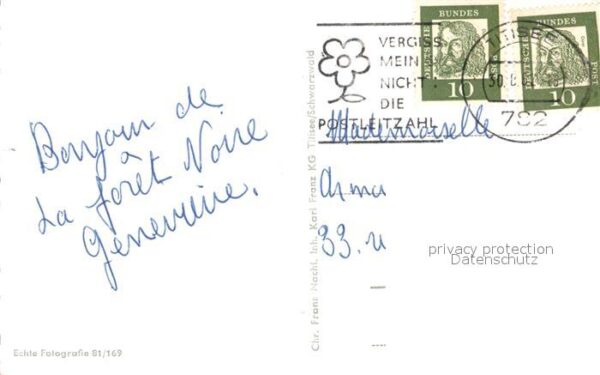 Bonjour de
La forêt Noire
Geneviève.
Echte Fotografie 81/169
Chr. Franz Nachf. Inh. Karl Franz KG Titisee/Schwarzwald
VERGISS
MEIN
NICHT
DIE
POSTLEITZAHL
DEUTSCHE BUNDESPOST
10
DEUTSCHE BUNDESPOST
10
TITISEE
782
Mademoiselle
33.
privacy protection
Datenschutz